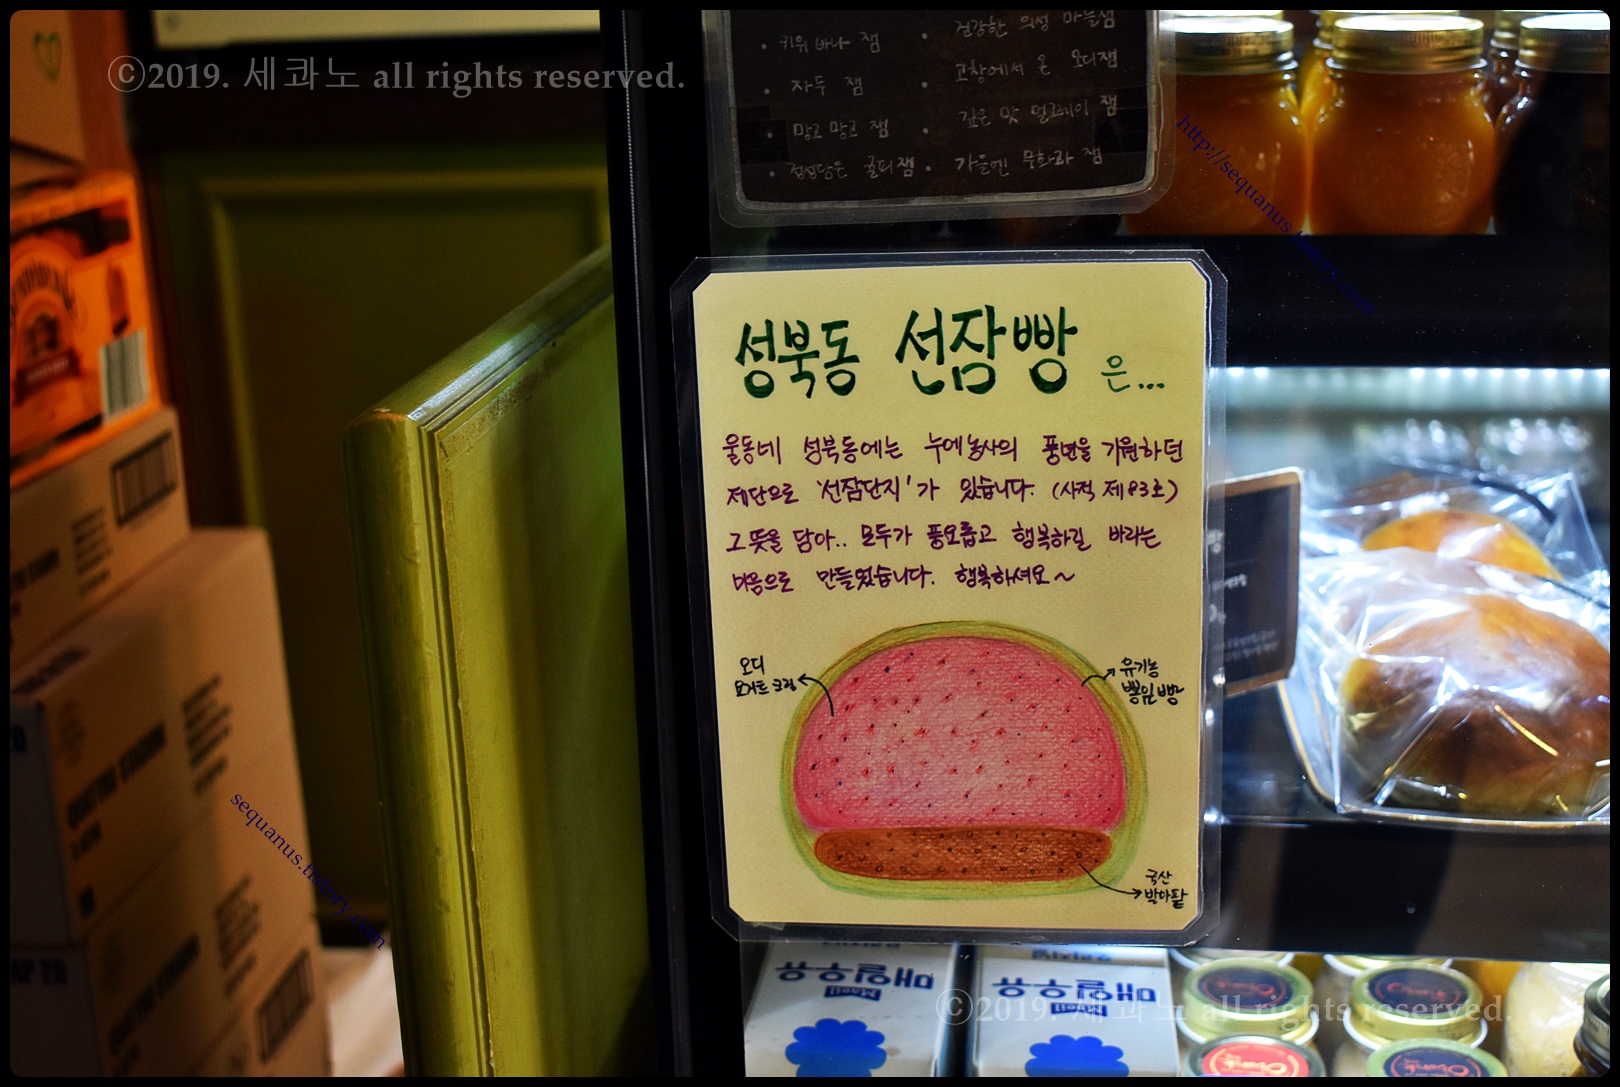 ⓒ2019. 세콰노 all rights reserved.
· 키위 바나 잼
· 건강한 의성 마늘잼
· 자두 잼
· 고창에서 온 오디잼
· 망고 망고 잼
· 깊은 맛 얼그레이 잼
· 정성담은 귤피잼
· 가을엔 무화과 잼
http://sequanus.tistory.com
성북동 선잠빵 은...
울동네 성북동에는 누에농사의 풍년을 기원하던
제단으로 '선잠단지'가 있습니다. (사적 제83호)
그 뜻을 담아.. 모두가 풍요롭고 행복하길 바라는
마음으로 만들었습니다. 행복하셔요~
오디
요거트 크림
유기농
뽕잎빵
국산
발아팥
sequanus.tistory.com
AP 20
매일우유
Maeil
매일우유
Maeil
ⓒ2019. 세콰노 all rights reserved.